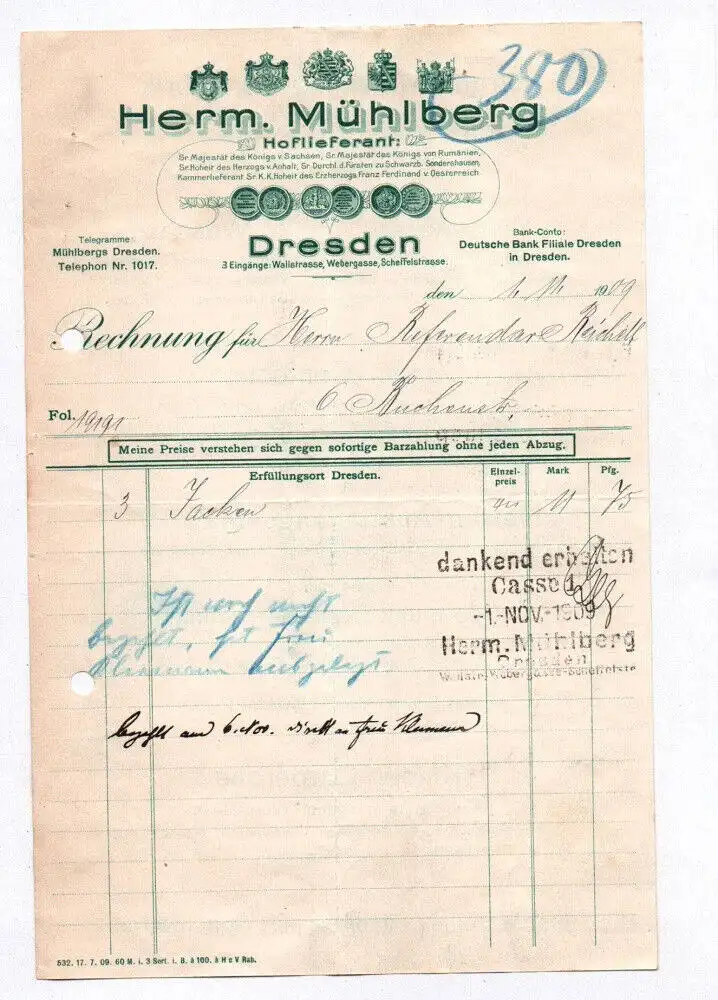 380
Herm. Mühlberg
Hoflieferant:
Sr. Majestät des Königs v. Sachsen, Sr. Majestät des Königs von Rumänien,
Sr. Hoheit des Herzogs v. Anhalt, Sr. Durchl. d. Fürsten zu Schwarzb. Sondershausen,
Kammerlieferant Sr. K. K. Hoheit des Erzherzogs Franz Ferdinand v. Oesterreich
Telegramme:
Mühlbergs Dresden.
Telephon Nr. 1017.
Dresden
3 Eingänge: Wallstrasse, Webergasse, Scheffelstrasse.
Bank-Conto:
Deutsche Bank Filiale Dresden
in Dresden.
den 1. 11. 1909
Rechnung für Herrn Referendar Reichelt
6
Fol. 19191
Meine Preise verstehen sich gegen sofortige Barzahlung ohne jeden Abzug.
Erfüllungsort Dresden. Einzel-preis Mark Pfg.
3 Jacken 11 75
dankend erhalten
Casse 1
-1.-NOV.-1909
Herm. Mühlberg
Dresden
Wallstr. Webergasse-Scheffelstr.
Ist noch nicht
bezahlt, hat Frau
Klemann ausgelegt
bezahlt am 6. Nov. direkt an Frau Klemann
532. 17. 7. 09. 60 M. i. 3 Sort. i. B. à 100. à H c V Rab.